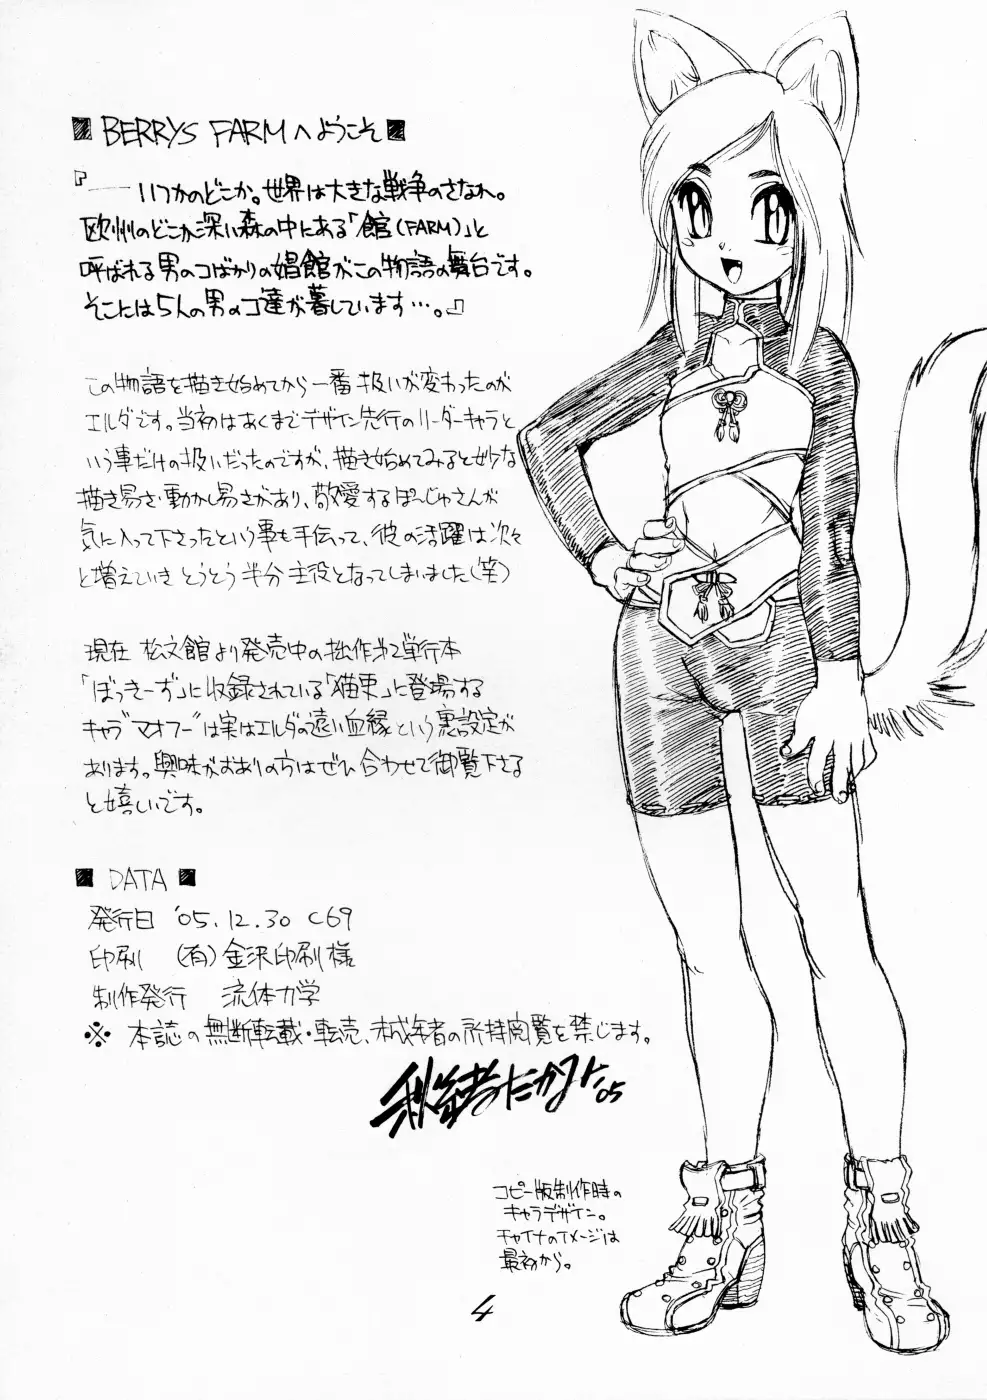 ■ BERRYS FARMへようこそ ■
『――いつかのどこか。世界は大きな戦争のさなか。
欧州のどこか深い森の中にある「館(FARM)」と
呼ばれる男のコばかりの娼館がこの物語の舞台です。
そこには5人の男のコ達が暮しています…。』
この物語を描き始めてから一番扱いが変わったのが
エルダです。当初はあくまでデザイン先行のリーダーキャラと
いう事だけの扱いだったのですが、描き始めてみると妙な
描き易さ・動かし易さがあり、敬愛するぽーじゅさんが
気に入って下さったという事も手伝って、彼の活躍は次々
と増えていきとうとう半分主役となってしまいました(笑)
現在 松文館より発売中の拙作第2単行本
「ぼっきーず」に収録されている「猫東」に登場する
キャラ"マオフー"は実はエルダの遠い血縁という裏設定が
あります。興味がおありの方はぜひ合わせて御覧下さる
と嬉しいです。
■ DATA ■
発行日 '05.12.30 C69
印刷 (有)金沢印刷様
制作発行 流体力学
※ 本誌の無断転載・転売、未成年者の所持閲覧を禁じます。
'05
コピー版制作時の
キャラデザイン。
チャイナのイメージは
最初から。
4